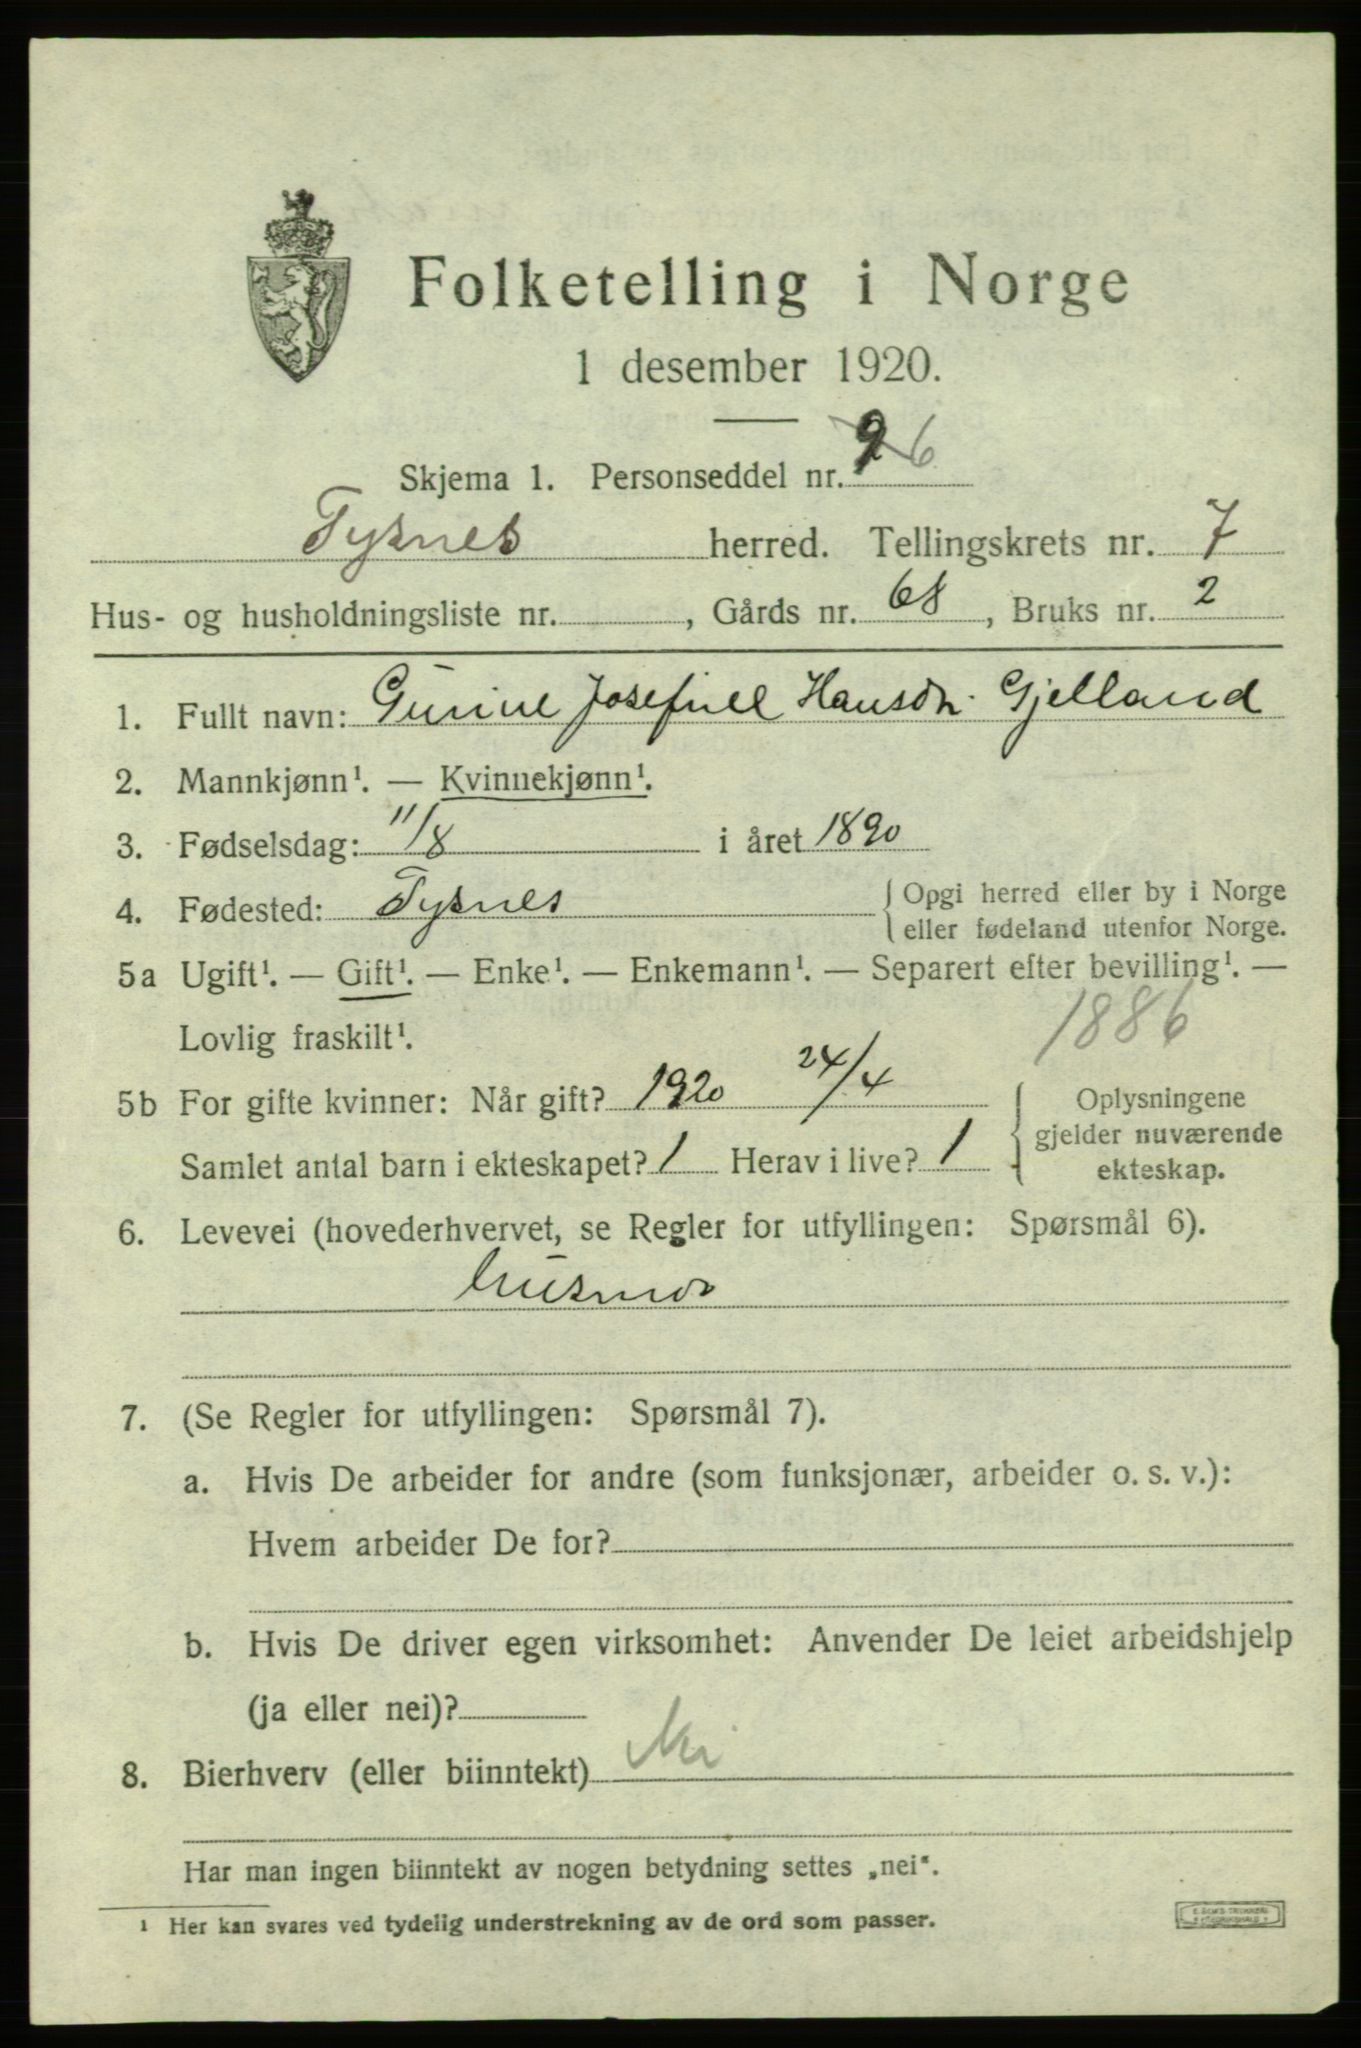 Folketelling i Norge
1 desember 1920.
Skjema 1. Personseddel nr. 6
Tysnes herred. Tellingskrets nr. 7
Hus- og husholdningsliste nr. , Gårds nr. 68 , Bruks nr. 2
1. Fullt navn: Gurine Josefine Hansdn. Gjelland
2. Mannkjønn¹. — Kvinnekjønn¹.
3. Fødselsdag: 11/8 i året 1890
4. Fødested: Tysnes { Opgi herred eller by i Norge
eller fødeland utenfor Norge.
5a Ugift¹. — Gift¹. — Enke¹. — Enkemann¹. — Separert efter bevilling¹. —
Lovlig fraskilt¹. 1886
5b For gifte kvinner: Når gift? 1920 24/4
Samlet antal barn i ekteskapet? 1 Herav i live? 1
Oplysningene
gjelder nuværende
ekteskap.
6. Levevei (hovederhvervet, se Regler for utfyllingen: Spørsmål 6).
Husmor
7. (Se Regler for utfyllingen: Spørsmål 7).
a. Hvis De arbeider for andre (som funksjonær, arbeider o. s. v.):
Hvem arbeider De for?
b. Hvis De driver egen virksomhet: Anvender De leiet arbeidshjelp
(ja eller nei)?
8. Bierhverv (eller biinntekt) Nei
Har man ingen biinntekt av nogen betydning settes „nei“.
¹ Her kan svares ved tydelig understrekning av de ord som passer.